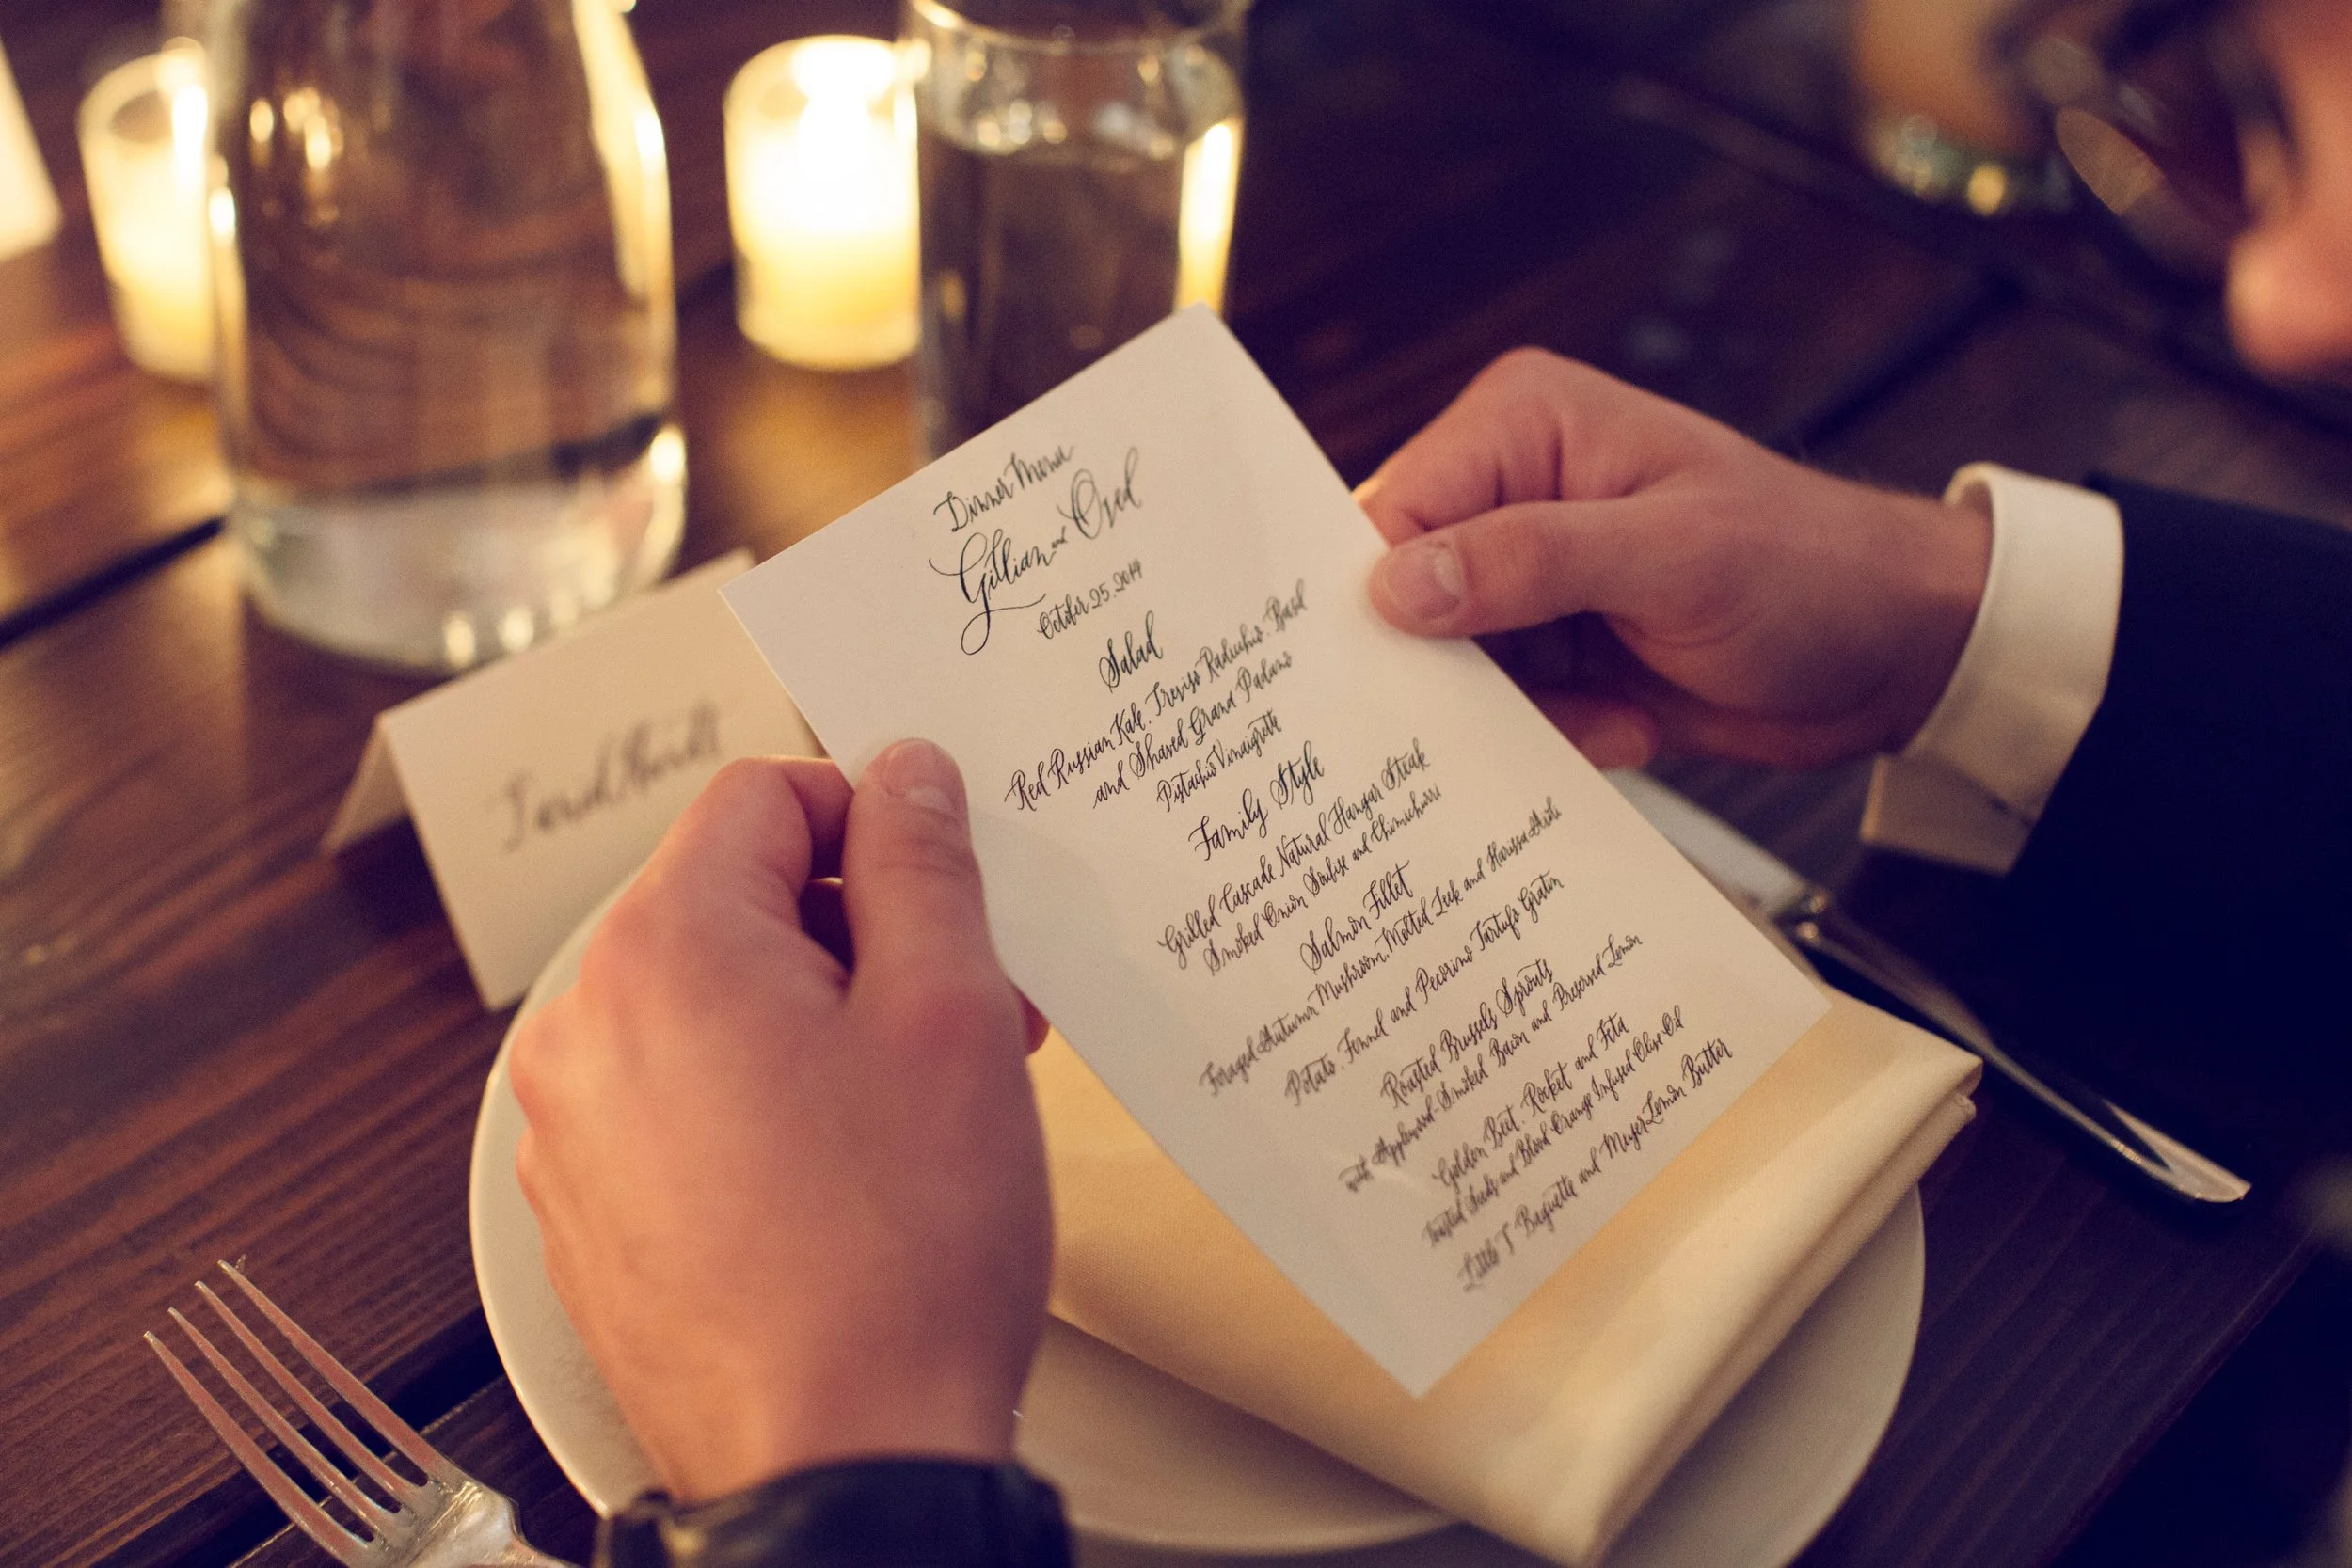 Dinner Menu
Gillian and Oved
October 25. 2014
Salad
Red Russian Kale, Treviso Radicchio, Basil
and Shaved Grand Padano
Pistachio Vinaigrette
Family Style
Grilled Cascade Natural Hangar Steak
Smoked Onion Soubise and Chimichurri
Salmon Fillet
Foraged Autumn Mushroom, Melted Leek and Harissa Aioli
Potato, Fennel and Pecorino Tartufo Gratin
Roasted Brussels Sprouts
with Applewood-Smoked Bacon and Preserved Lemon
Golden Beet, Rocket and Feta
Toasted Seeds and Blood Orange Infused Olive Oil
Little T Baguette and Meyer Lemon Butter